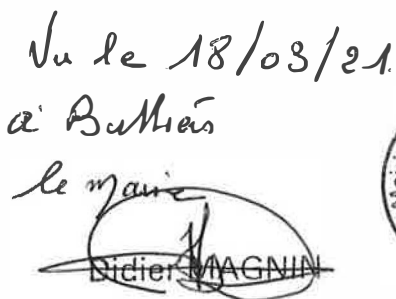 Vu le 18/03/21.
à Buthiers
le maire
Didier MAGNIN